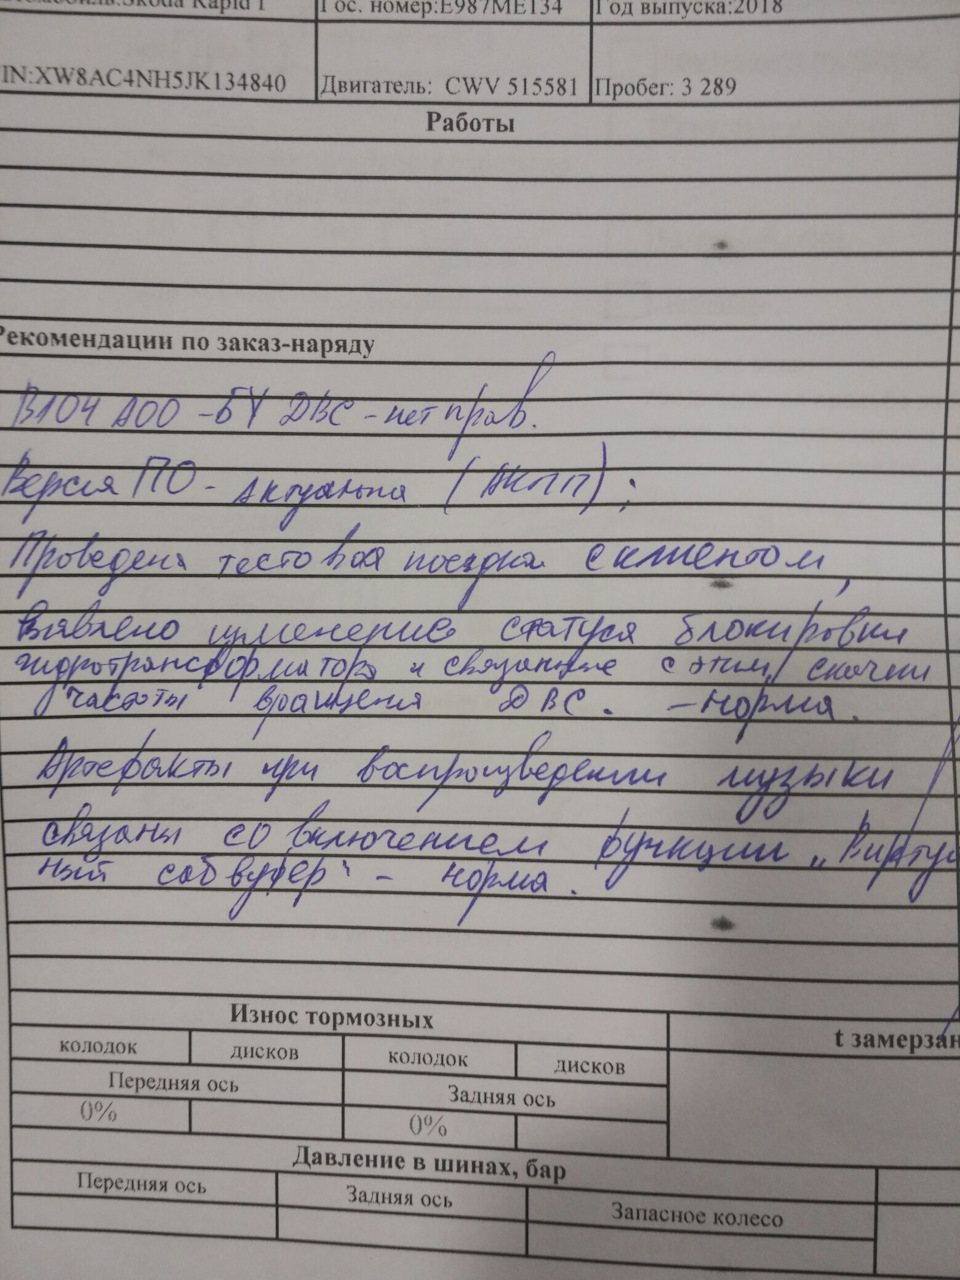 втомобиль:Skoda Rapid I Гос. номер:Е987МЕ134 Год выпуска:2018
IN:XW8AC4NH5JK134840 Двигатель: CWV 515581 Пробег: 3 289
Работы
Рекомендации по заказ-наряду
В104 А00 - БУ ДВС - нет прав.
Версия ПО - актуальна (АКПП);
Проведена тестовая поездка с клиентом,
выявлено изменение статуса блокировки
гидротрансформатора и связанные с этим скачки
частоты вращения ДВС. - норма.
Артефакты при воспроизведении музыки
связаны со включением функции „Виртуа
ный сабвуфер" - норма.
Износ тормозных t замерзан
колодок дисков колодок дисков
Передняя ось Задняя ось
0% 0%
Давление в шинах, бар
Передняя ось Задняя ось Запасное колесо